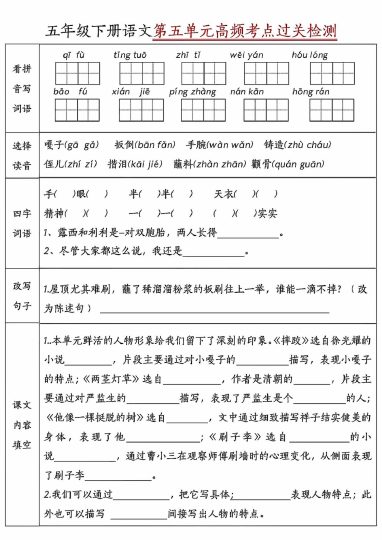 五年级下册语文第五单元高频考点过关检测
看拼音写词语
qī fù tǐng tuō zhī tǐ wēi yán hóu lóng
bāo fú xián jiē píng zhàng nán kān hōng rán
选择读音
嘎子(gā gǎ) 扳倒(bān fān) 手腕(wàn wǎn) 铸造(zhù cháu)
侄儿(zhí zǐ) 揩泪(kāi jié) 蘸料(zhàn zhān) 颧骨(quán guān)
四字词语
手( )眼( ) 半( )半( ) 天衣( )( )
精神( )( ) 一( )一( ) ( )( )实实
1、露西和利利是-对双胞胎，两人长得____________。
2、尽管大家都这么说，我还是____________。
改写句子
1.屋顶尤其难刷，蘸了稀溜溜粉浆的板刷往上一举，谁能一滴不掉？（改
为陈述句）____________
课文内容填空
1..本单元鲜活的人物形象给我们留下了深刻的印象。《摔跤》选自徐光耀的
小说__________，片段主要通过对小嘎子的__________描写，表现小嘎子
的特点；《两茎灯草》选自__________，作者是清朝的________，片段主
要通过对严监生的__________描写，表现了严监生是个__________的人；
《他像一棵挺脱的树》选自________，文中通过细致描写祥子结实健美的
身体，表现了他______________；《刷子李》选自____________的小
说____________，通过曹小三在观察师傅刷墙时的心理变化，从侧面表现
了刷子李____________。
2.我们可以通过__________，把它写具体;__________表现人物特点；此
外也可以描写 __________间接写出人物的特点。